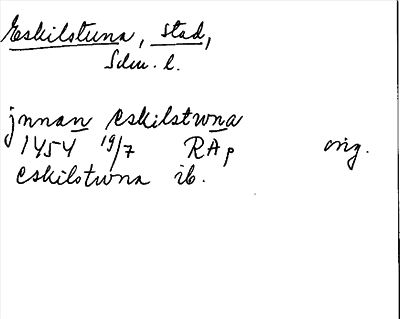 Eskilstuna, stad,
Sdm. l.
jnnan eskilstwna
1454 19/7 RAp orig.
eskilstwna ib.